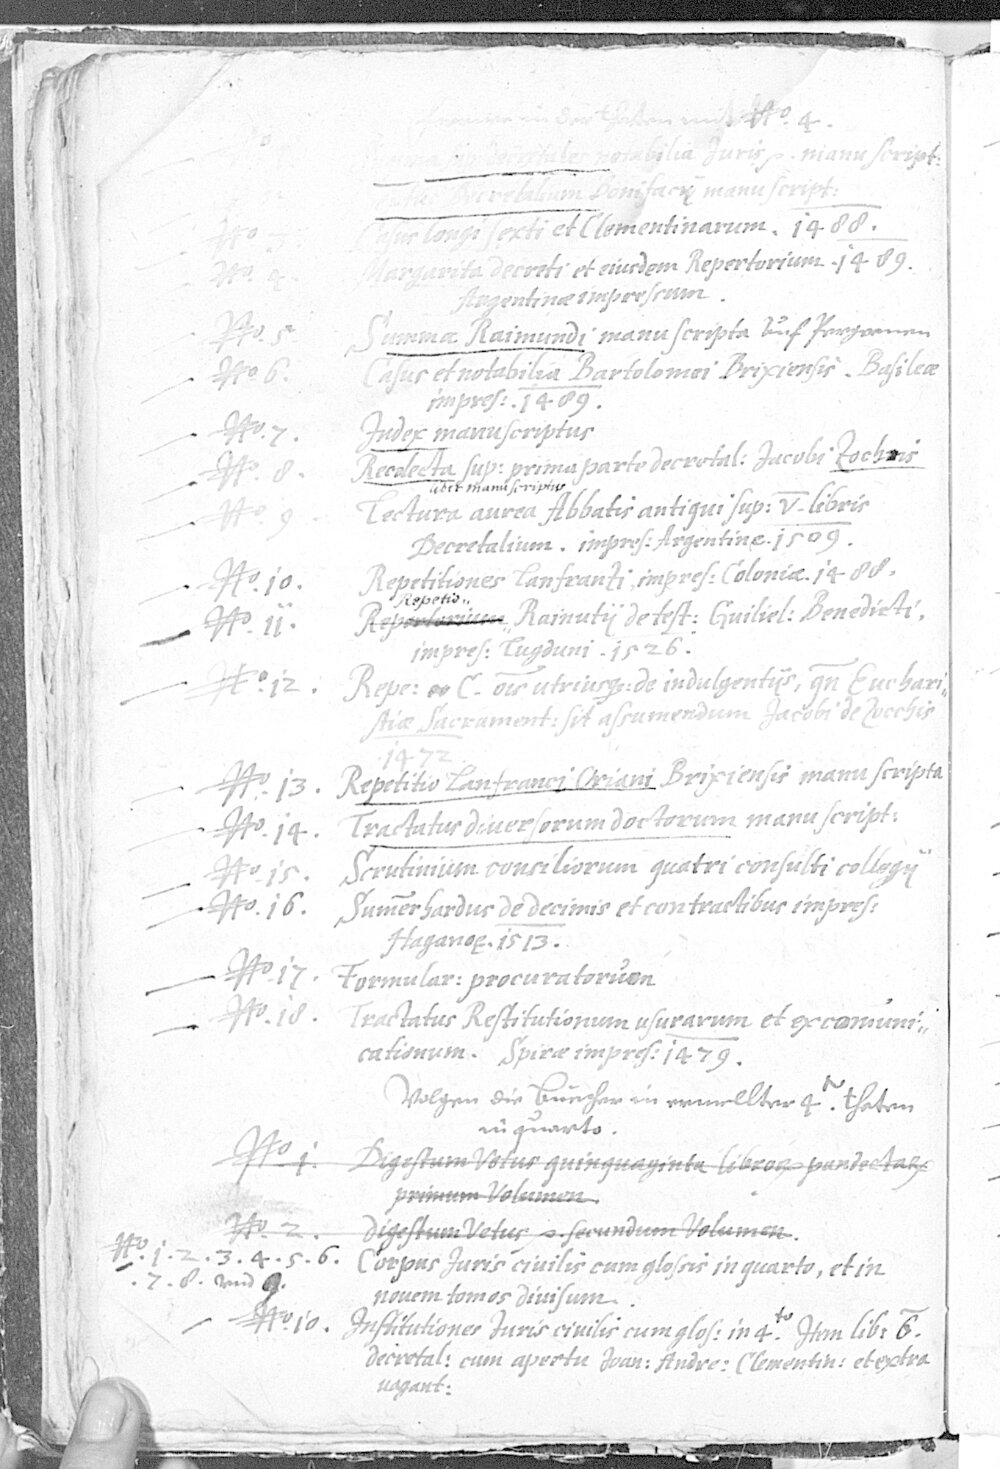 in der thaten mit No. 4.
notabilia Juris p. manu script:
Decretalium Bonifacij manu script:
Casus longi sexti et Clementinarum. 1488.
No. 4. Margarita decreti et eiusdem Repertorium. 1489.
Argentinæ impressum.
No. 5 Summa Raimundi manu scripta auf Pergamen
No. 6. Casus et notabilia Bartolomei Brixiensis. Basileæ
impres:. 1489.
No. 7. Index manuscriptus
No. 8. Recolecta sup: prima parte decretal: Jacobi Zochis
liber manu scriptus
No. 9 Lectura aurea Abbatis antiqui sup: V. libris
Decretalium. impres: Argentinæ. 1509.
No. 10. Repetitiones Lanfranzi, impres: Coloniæ. 1488.
Repetio..
No. 11. Repertorium,, Rainutij de test: Guiliel: Benedicti,
impres: Lugduni. 1526.
No. 12. Repe: C. ois utriusq: de indulgentijs, qn Euchari,,
stiæ Sacrament: sit assumendum Jacobi de Zocchis
1472
No. 13. Repetitio Lanfranci Oriani Brixiensis manu scripta
No. 14. Tractatus diversorum doctorum manu script:
No. 15. Scrutinium consiliorum quatri consulti collegij
No. 16. Sumerhardus de decimis et contractibus impres:
Haganoæ. 1513.
No. 17. Formular: procuratorum
No. 18. Tractatus Restitutionum usurarum et excomuni,,
cationum. Spiræ impres: 1479.
Volgen die Büecher in ermellter 4. thaten
in quarto.
No. 1. Digestum Vetus quinquaginta libror pandectar
primum Volumen.
No. 2. Digestum Vetus p. secundum Volumen.
No. 1. 2. 3. 4. 5. 6. Corpus Juris civilis cum glossis in quarto, et in
. 7. 8. und 9. novem tomos divisum.
No. 10. Institutiones Juris civilis cum glos: in 4.to Item lib: 6.
decretal: cum apertu Joan: Andre: Clementin: et extra
vagant: